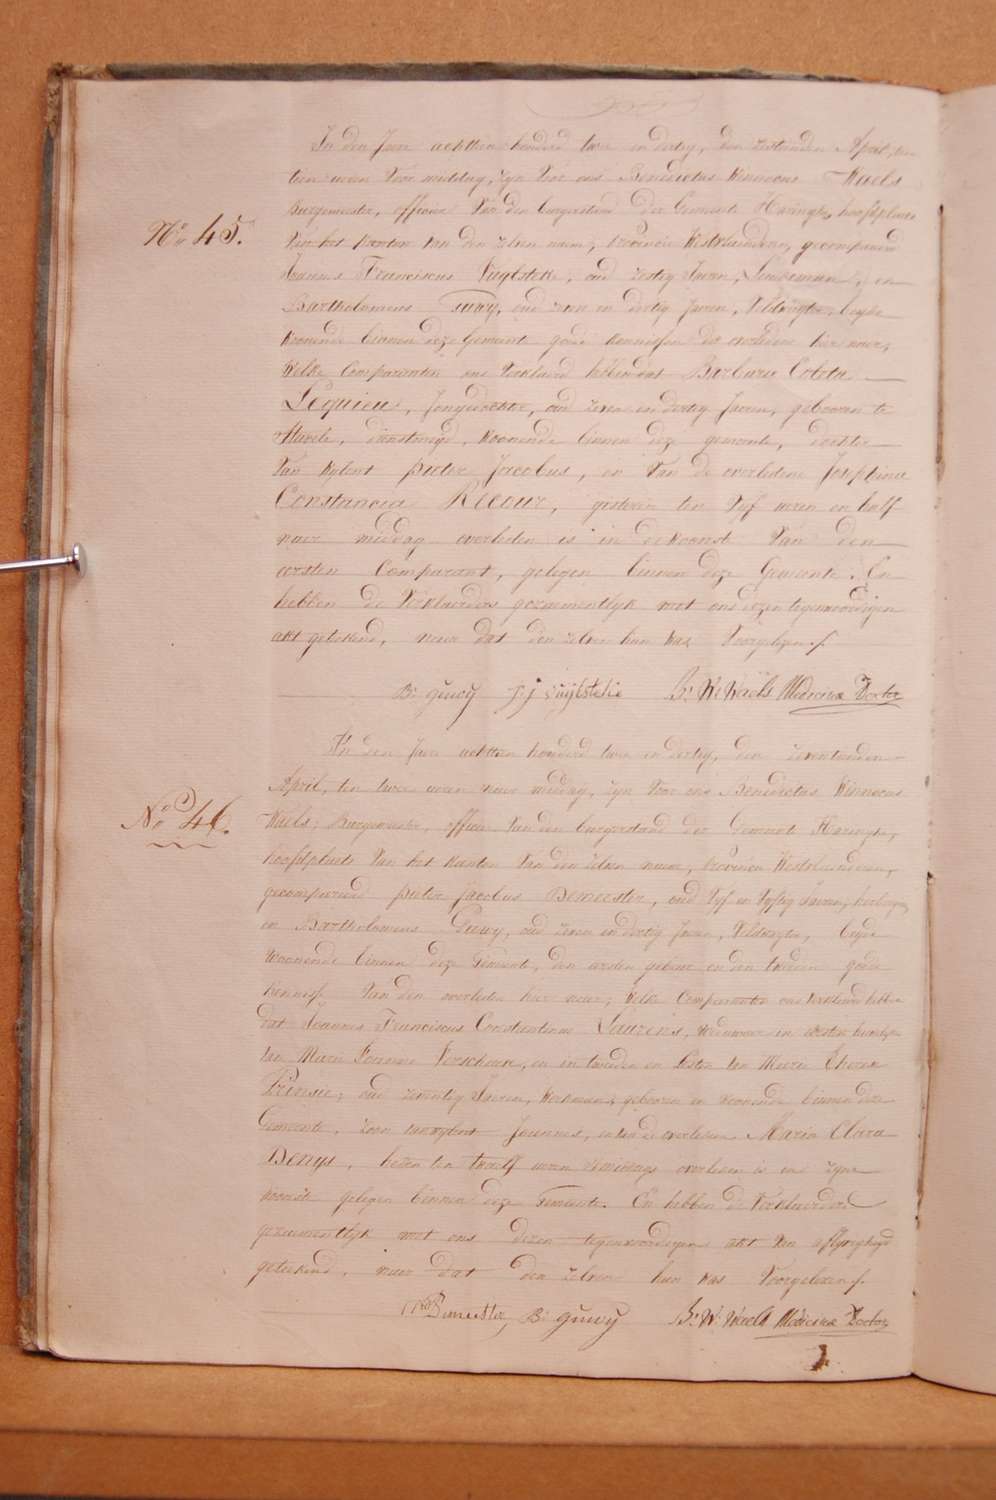 In den Jare achttien honderd twee en dertig, den zestienden April, ten
tien uren voor middag, zyn voor ons Benedictus Winnocus Waels
Burgmeester, officier van den burgerstand der Gemeente Haringhe, hoofdplaets
No 45.
van het kanton van den zelven naem, provincie Westvlaenderen, gecompareerd
Joannes Franciscus Vuylsteke, oud zestig Jaren, Landsman, en
Bartholomeus Guwy, oud zeven en dertig Jaren, Veldwagter, beyde
woonende binnen deze Gemeente goede kennissen der overledene hier naer,
Welke Comparanten ons verklaerd hebben dat Barbara Coleta
Lequieu, Jongedochter, oud zeven en dertig Jaren, gebooren te
Stavele, dienstmegd, woonende binnen deze gemeente, dochter
van wylent pieter Jacobus, en van de overledene Josephine
Constancia Recour, gisteren ten vyf uren en half
naer middag overleden is in de woonst van den
eersten Comparant, gelegen binnen deze Gemeente. En
hebben de verklaerders gezamentlyk met ons dezen tegenwoordigen
akt geteekend, naer dat den zelven hun was voorgelezen ./.
Bs guwy J. f vuylsteke Bs. W. Waels Medicinæ Doctor
In den Jare achttien honderd twee en dertig, den zeventienden
April, ten twee uren naer middag, zyn voor ons Benedictus Winnocus
No 46.
Waels, Burgmeester, officier van den burgerstand der Gemeente Haringhe,
hoofdplaets van het kanton van den zelven naem, provincie Westvlaenderen,
gecompareerd pieter Jacobus Demeester, oud vyf en vyftig Jaren,
en Bartholomeus Guwy, oud zeven en dertig Jaren, Veldwagter, beyde
woonende binnen deze Gemeente, den eersten gebuer en den tweeden goede
kennis van den overleden hier naer; Welke Comparanten ons verklaerd hebben
dat Joannes Franciscus Constantinus Laurens, weduwaer in eersten huwelyk
van Marie Verschaeve, en in tweeden en lesten van Marie Theresia
oud zeventig Jaeren, Werkman, gebooren en woonende binnen deze
Gemeente, zoon van wylent Joannes, en van de overledene Maria Clara
Denys, heden ten twaelf uren 'smiddags overleden is in zyne
woonste gelegen binnen deze Gemeente. En hebben de verklaerders
gezamentlyk met ons dezen tegenwoordigen akt van aflyvigheyd
geteekend, naer dat den zelven hun was voorgelezen ./.
Demeester, Bs guwy Bs. W. Waels Medicinæ Doctor